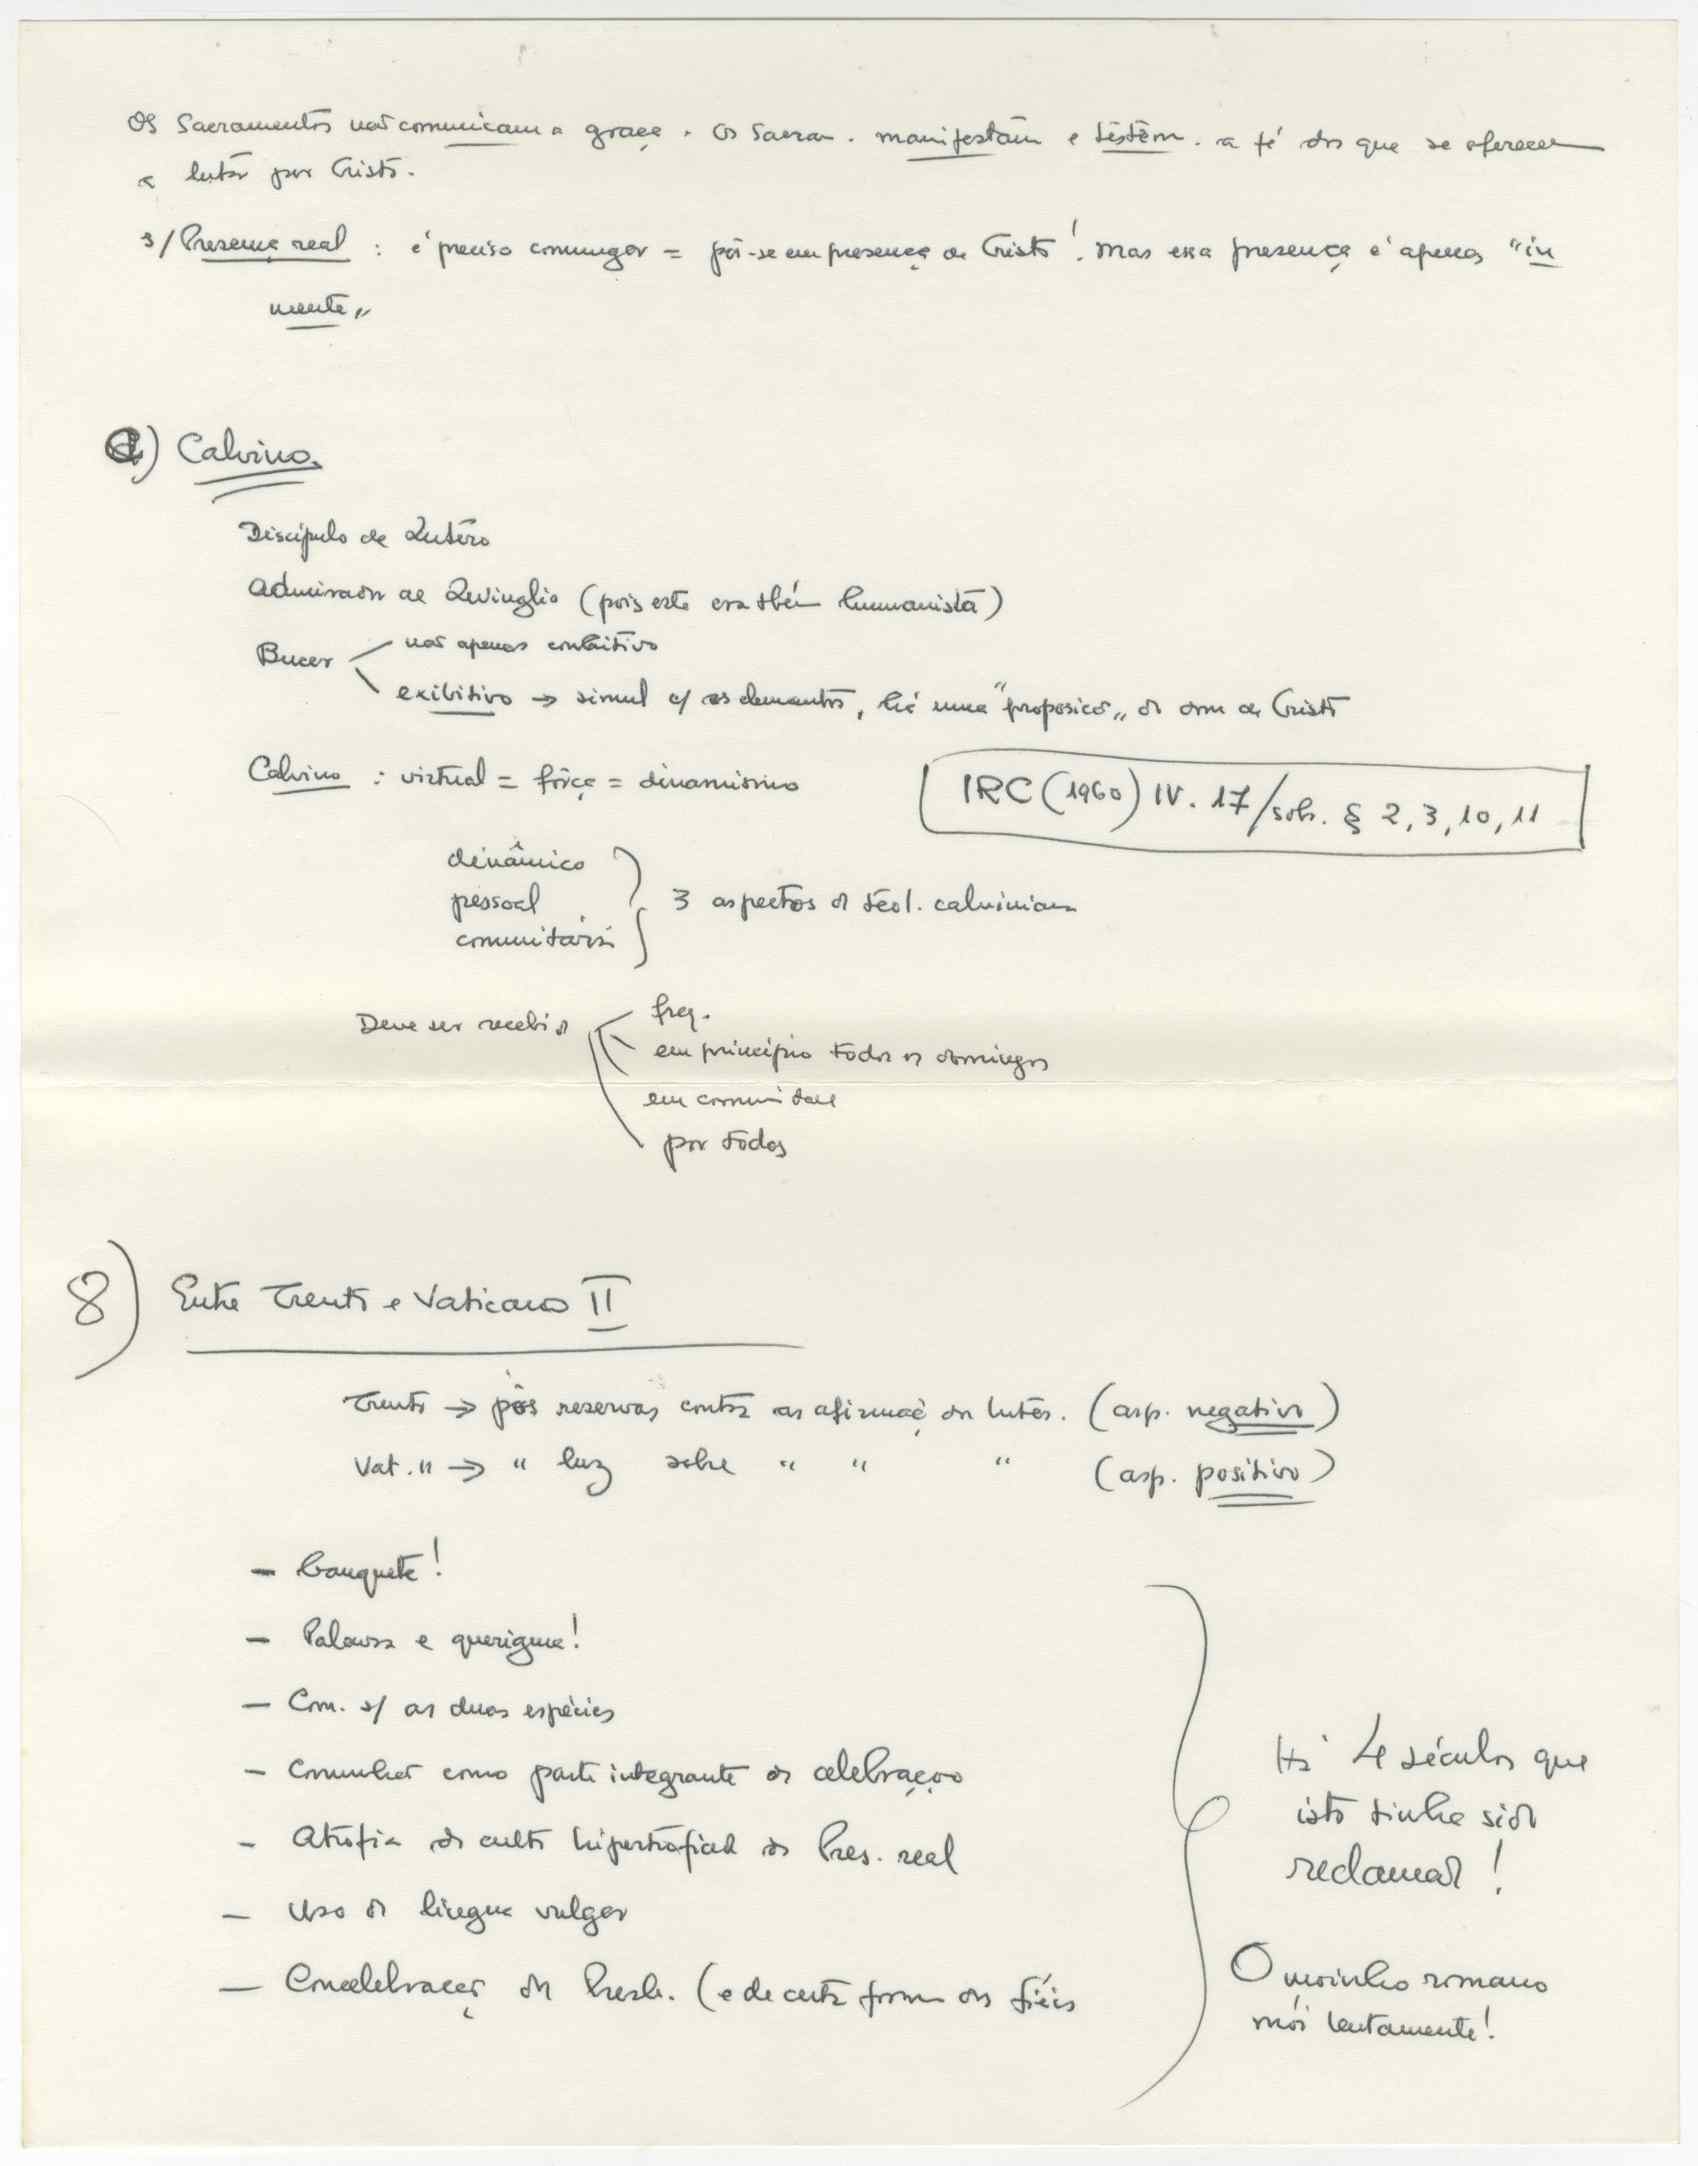 Os Sacramentos não comunicam a graça. Os Sacram. manifestam e testem. a fé dos que se oferecem
a lutar por Cristo.
3/ Presença real : é preciso comungar = pôr-se em presença de Cristo! Mas essa presença é apenas "in
mente"
d) Calvino
Discípulo de Lutero
Admirador de Zwinglio (pois este era tbém humanista)
Bucer
não apenas
exibitivo → simul c/ os elementos, há uma "proposição" do dom de Cristo
Calvino : virtual = fôrça = dinamismo
IRC (1960) IV. 17/sob. § 2, 3, 10, 11
dinâmico
pessoal
comunitário
3 aspectos da teol. calviniana
Deve ser recebida
freq.
em princípio todos os domingos
em comunidade
por todos
8) Entre Trento e Vaticano II
Trento → pôs reservas contra as afirmaç. dos luter. (asp. negativo)
Vat. II → " luz sobre " " " (asp. positivo)
— Banquete!
— Palavra e querigma!
— Com. s/ as duas espécies
— Comunhão como parte integrante da celebração
— Atrofia do culto hipertrofiado da Pres. real
— Uso da língua vulgar
— Concelebração dos Presb. (e de certa forma dos fiéis
Há 4 séculos que
isto tinha sido
reclamado!
O moinho romano
mói lentamente!